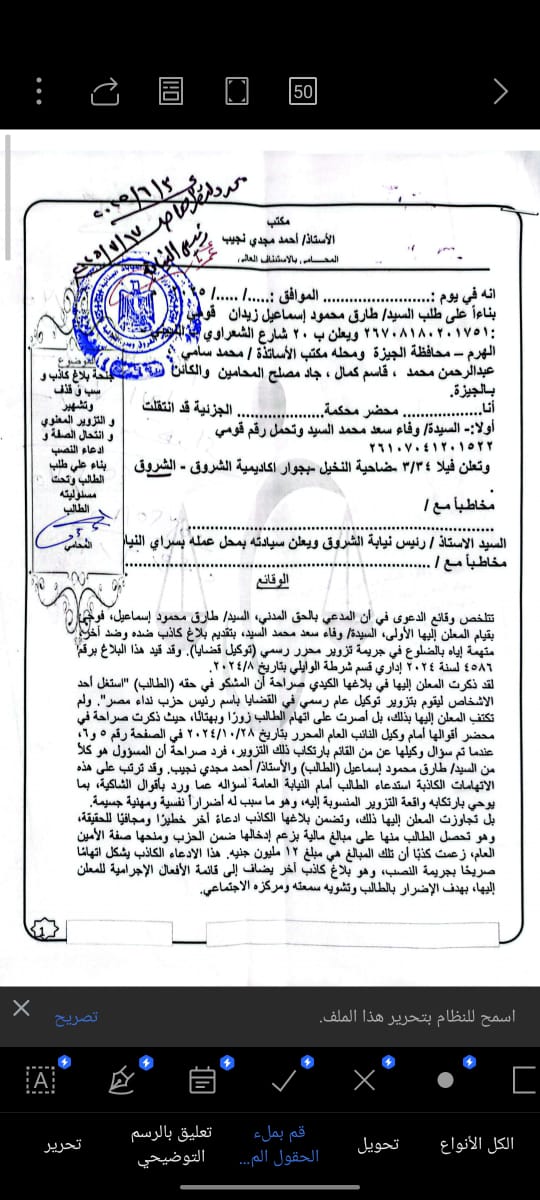 50
مكتب
الأستاذ/ أحمد مجدي نجيب
المحامى بالاستئناف العالى
انه في يوم :...................... الموافق :...../ ...../
بناءاً على طلب السيد/ طارق محمود إسماعيل زيدان قومي
: ٢٦٧٠٨١٨٠٢٠١٧٥١ ويعلن ب ٢٠ شارع الشعراوي
الهرم – محافظة الجيزة ومحله مكتب الأساتذة / محمد سامي
عبدالرحمن محمد ، قاسم كمال ، جاد مصلح المحامين والكائن
بالجيزة.
أنا................. محضر محكمة.................. الجزنية قد انتقلت
أولا:- السيدة/ وفاء سعد محمد السيد وتحمل رقم قومي
٢٦١٠٧٠٤١٢٠١٥٢٢
وتعلن فيلا ٣/٣٤ ضاحية النخيل -بجوار اكاديمية الشروق - الشروق
.
مخاطباً مع /
السيد الاستاذ / رئيس نيابة الشروق ويعلن سيادته بمحل عمله بسراي النيا
مخاطباً مع / ......................................................
الموضوع
جنحة بلاغ كاذب و
سب و قذف
وتشهير
و التزوير المعنوي
و انتحال الصفة و
ادعاء النصب
بناء علي طلب
الطالب وتحت
مسئوليته
الطالب
المحامي
الوقائع
تتلخص وقائع الدعوى في أن المدعي بالحق المدني، السيد/ طارق محمود إسماعيل، فوجئ
بقيام المعلن إليها الأولى، السيدة/ وفاء سعد محمد السيد، بتقديم بلاغ كاذب ضده وضد آخر،
متهمة إياه بالضلوع في جريمة تزوير محرر رسمي (توكيل قضايا). وقد قيد هذا البلاغ برقم
٤٥٨٦ لسنة ٢٠٢٤ إداري قسم شرطة الوايلي بتاريخ ٢٠٢٤/٨.
لقد ذكرت المعلن إليها في بلاغها الكيدي صراحة أن المشكو في حقه (الطالب) "استغل أحد
الأشخاص ليقوم بتزوير توكيل عام رسمي في القضايا باسم رئيس حزب نداء مصر". ولم
تكتف المعلن إليها بذلك، بل أصرت على اتهام الطالب زورًا وبهتانًا، حيث ذكرت صراحة في
محضر أقوالها أمام وكيل النائب العام المحرر بتاريخ ٢٠٢٤/١٠/٢٨ في الصفحة رقم ٥ و٦،
عندما تم سؤال وكيلها عن من القائم بارتكاب ذلك التزوير، فرد صراحة أن المسؤول هو كلاً
من السيد/ طارق محمود إسماعيل (الطالب) والأستاذ/ أحمد مجدي نجيب. وقد ترتب على هذه
الاتهامات الكاذبة استدعاء الطالب أمام النيابة العامة لسؤاله عما ورد بأقوال الشاكية، بما
يوحي بارتكابه واقعة التزوير المنسوبة إليه، وهو ما سبب له أضراراً نفسية ومهنية جسيمة.
بل تجاوزت المعلن إليها ذلك، وتضمن بلاغها الكاذب ادعاءً آخر خطيرًا ومجافيًا للحقيقة،
وهو تحصل الطالب منها على مبالغ مالية بزعم إدخالها ضمن الحزب ومنحها صفة الأمين
العام، زعمت كذبًا أن تلك المبالغ هي مبلغ ١٢ مليون جنيه. هذا الادعاء الكاذب يشكل اتهامًا
صريحًا بجريمة النصب، وهو بلاغ كاذب آخر يضاف إلى قائمة الأفعال الإجرامية للمعلن
إليها، بهدف الإضرار بالطالب وتشويه سمعته ومركزه الاجتماعي.
1
اسمح للنظام بتحرير هذا الملف.
تصريح
الكل الأنواع
تحويل
قم بملء الحقول الم...
تعليق بالرسم التوضيحي
تحرير